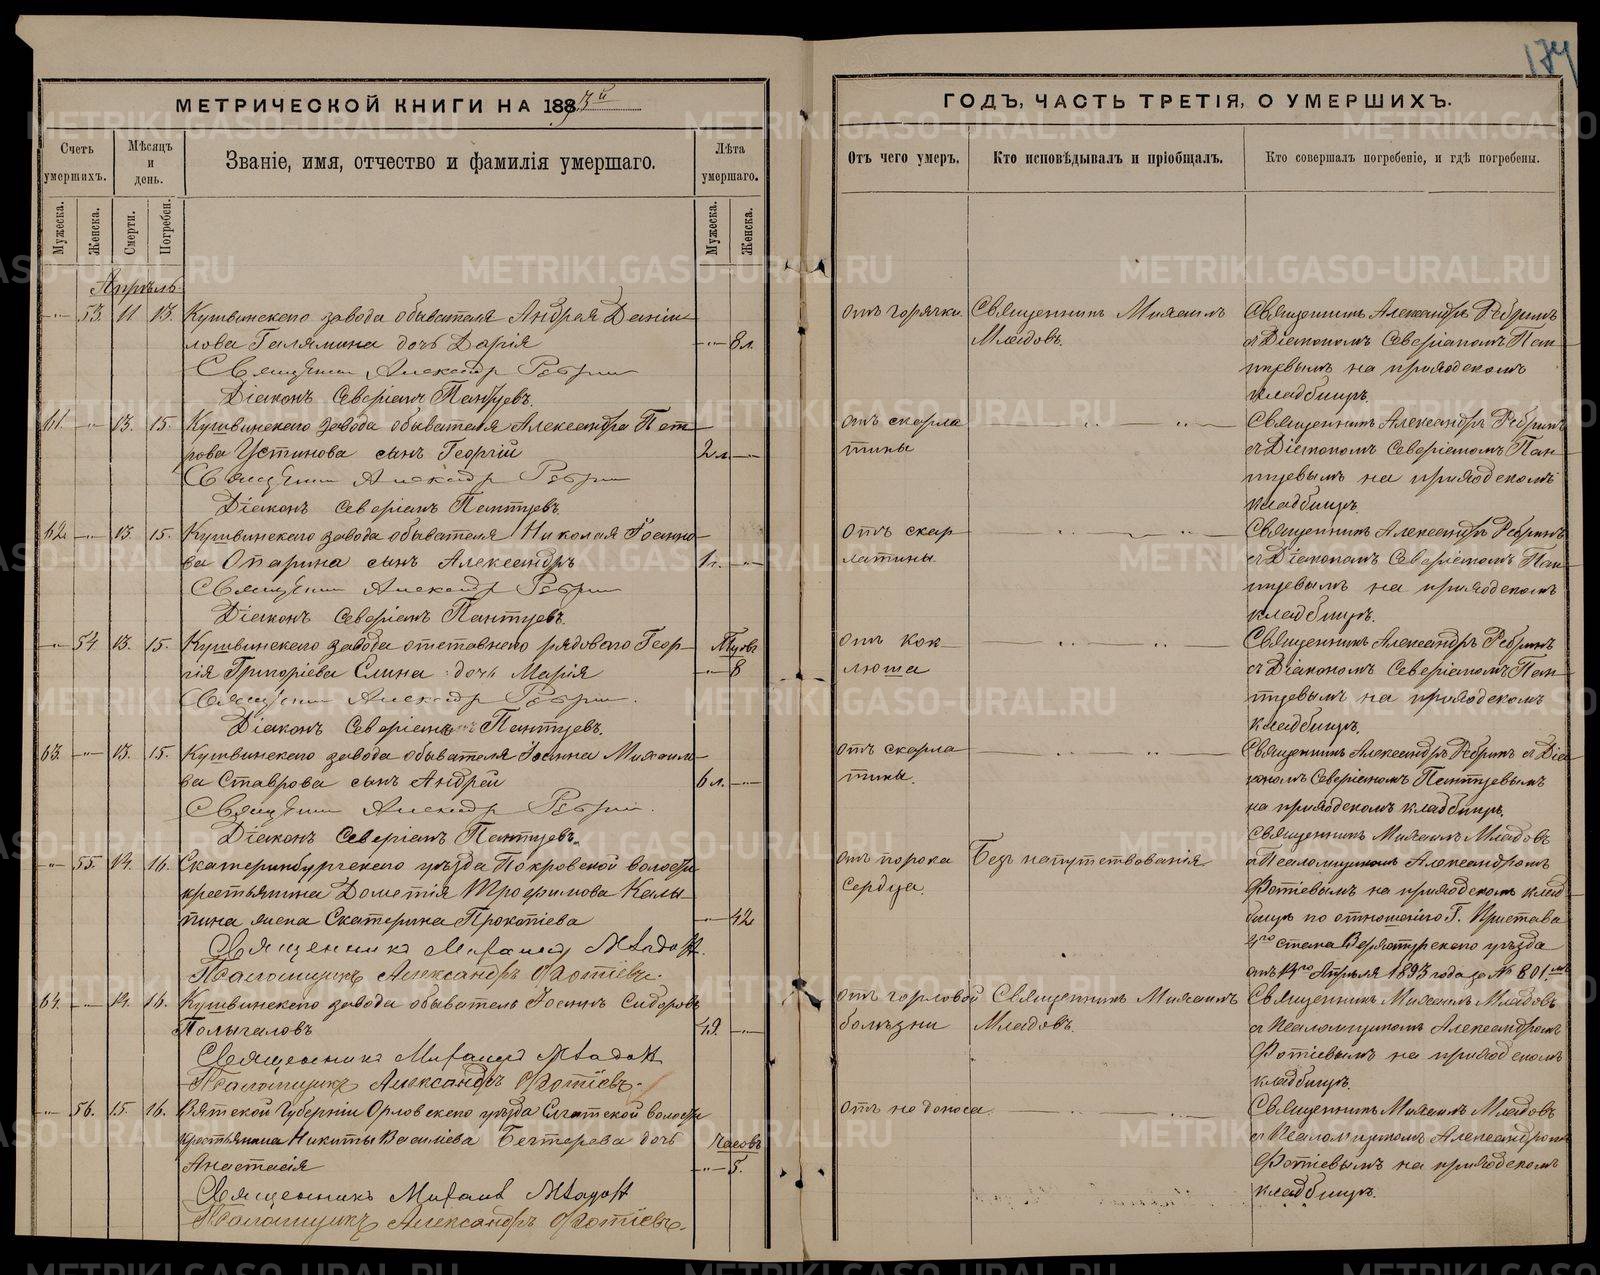 174
МЕТРИЧЕСКОЙ КНИГИ НА 1893й
ГОДЪ, ЧАСТЬ ТРЕТІЯ, О УМЕРШИХЪ.
Счетъ умершихъ.
Мѣсяцъ и день.
Званіе, имя, отчество и фамилія умершаго.
Лѣта умершаго.
Отъ чего умеръ.
Кто исповѣдывалъ и пріобщалъ.
Кто совершалъ погребеніе, и гдѣ погребены.
Мужеска.
Женска.
Смерти.
Погребен.
Мужеска.
Женска.
Апрѣль
-"- 53. 11 13. Кушвинскаго завода обывателя Андрея Даніи-
лова Галямина дочь Дарія -"- 8 л.
Священникъ Александръ Ребринъ
Діаконъ Северіанъ Пантуевъ.
отъ горячки. Священникъ Михаилъ
Младовъ.
Священникъ Александръ Ребринъ
съ Діакономъ Северіаномъ Пан-
туевымъ на приходскомъ
кладбищѣ.
61. -"- 13. 15. Кушвинскаго завода обывателя Александра Пет-
рова Устинова сынъ Георгій 2 л. -"-
Священникъ Александръ Ребринъ
Діаконъ Северіанъ Пантуевъ.
отъ скарла
тины
Священникъ Александръ Ребринъ
съ Діакономъ Северіаномъ Пан-
туевымъ на приходскомъ
кладбищѣ.
62. -"- 13. 15. Кушвинскаго завода обывателя Николая Іоанно-
ва Опарина сынъ Александръ 1 г. -"-
Священникъ Александръ Ребринъ
Діаконъ Северіанъ Пантуевъ.
Отъ скар
латины.
Священникъ Александръ Ребринъ
съ Діакономъ Северіаномъ Пан-
туевымъ на приходскомъ
кладбищѣ.
-"- 54. 13. 15. Кушвинскаго завода отставнаго рядоваго Геор-
гія Григоріева Елина дочь Марія -"- 8
Священникъ Александръ Ребринъ.
Діаконъ Северіанъ Пантуевъ.
отъ кок
люша
Священникъ Александръ Ребринъ
съ Діакономъ Северіаномъ Пан-
туевымъ на приходскомъ
кладбищѣ.
63. -"- 13. 15. Кушвинскаго завода обывателя Іоанна Михаило-
ва Ставрова сынъ Андрей 6 л. -"-
Священникъ Александръ Ребринъ.
Діаконъ Северіанъ Пантуевъ.
отъ скарла
тины.
Священникъ Александръ Ребринъ съ Діа
кономъ Северіаномъ Пантуевымъ
на приходскомъ кладбищѣ.
-"- 55. 14. 16. Екатеринбургскаго уѣзда Покровской волости
крестьянина Дометія Трофимова Калы
гина жена Екатерина Прокопіева -"- 42
Священникъ Михаилъ Младовъ.
Псаломщикъ Александръ Фотіевъ.
отъ порока
сердца.
Безъ напутствованія
Священникъ Михаилъ Младовъ
съ Псаломщикомъ Александромъ
Фотіевымъ на приходскомъ клад-
бищѣ по отношенію Г. Пристава
4го стана Верхотурскаго уѣзда
отъ 14го Апрѣля 1893 года за № 801мъ
64. -"- 14. 16. Кушвинскаго завода обыватель Іоаннъ Сидоровъ
Полыгаловъ 49. -"-
Священникъ Михаилъ Младовъ
Псаломщикъ Александръ Фотіевъ.
отъ горловой
болѣзни
Священникъ Михаилъ
Младовъ.
Священникъ Михаилъ Младовъ
съ Псаломщикомъ Александромъ
Фотіевымъ на приходскомъ
кладбищѣ.
-"- 56. 15. 16. Вятской Губерніи Орловскаго уѣзда волости
крестьянина Никиты Васильева Бехтерева дочь часовъ
Анастасія -"- 5.
Священникъ Михаилъ Младовъ
Псаломщикъ Александръ Фотіевъ.
отъ недоноса.
Священникъ Михаилъ Младовъ
съ Псаломщикомъ Александромъ
Фотіевымъ на приходскомъ
кладбищѣ.
METRIKI.GASO-URAL.RU